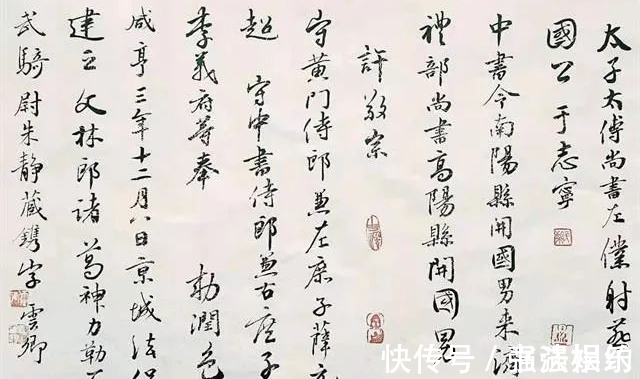 太子太傅尚書左僕射燕
國公于志寧
中書令南陽縣開國男来濟
禮部尚書高陽縣開國男
許敬宗
守黄門侍郎兼左庶子薛元
超 守中書侍郎兼右庶子
李義府等奉 勅潤色
咸亨三年十二月八日京城法侣
建立 文林郎諸葛神力勒
武騎尉朱静藏鐫字 雲卿
快传号 /